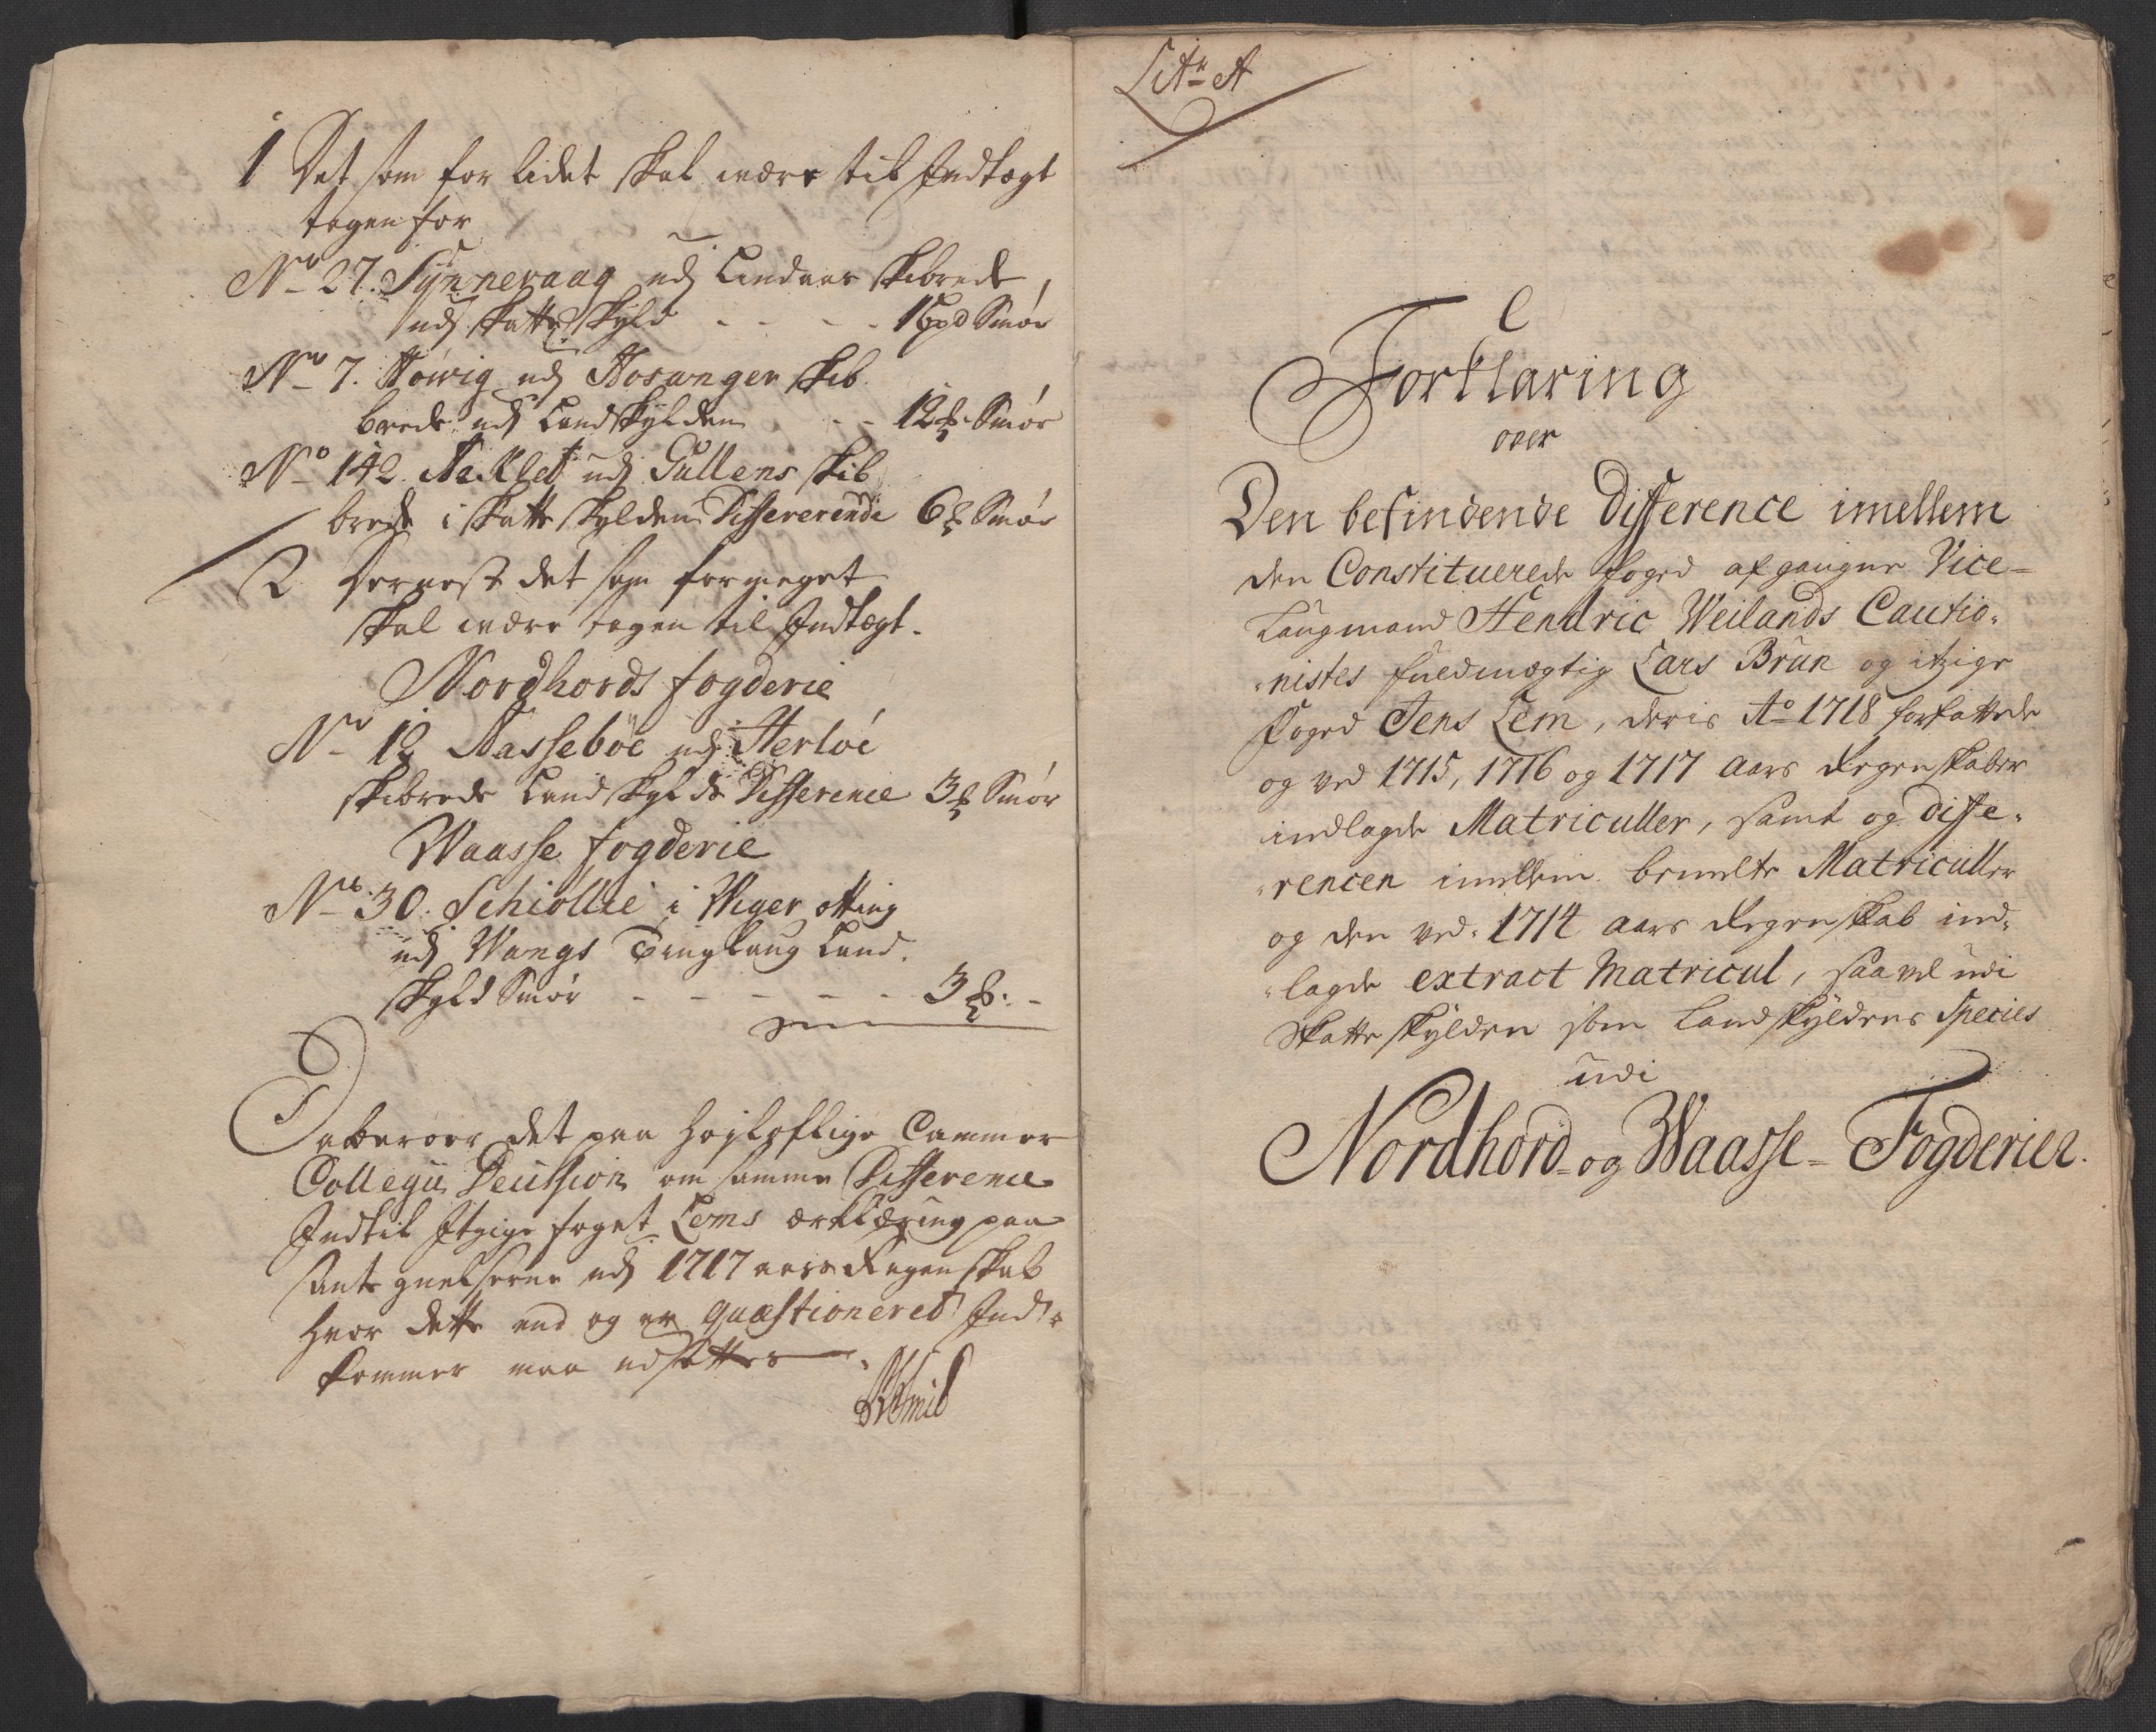 1 Det som for lidet skal være til Indtægt
tagen for
No 27. Synnevaag udj Lindaas skibrede,
udj skatteskyld - - - - 1 pd Smør
No 7. Høwig udj Hosanger skib
brede udj Landskylden - - 12 ℔ Smør
No 142. Næklet udj Gullens skib
brede i skatteskylden Differerende 6 ℔ Smør
2 Dernest det som formeget
skal være tagen til Indtægt.
Nordhords fogderie
No 12 Nasseböe udj Herlöe
skibrede Landskylds Difference 3 ℔ Smør
Waasse fogderie
No 30. Schiollie i Wiger otting
udj Wangs Tinglaug Land.
skyld Smør - - - - - - 3 ℔: -
Saa beroer det paa Høyloflige Cammer
Collegii Decission om samme Difference
Indtil Itzige foget Lems erklæring paa
antegnelserne udj 1717 aars Regenskab
hvor dette end og er quæstioneret Ind-
kommer maa udsættes.
Litr A
Forklaring
over
Den befindende Difference imellem
den Constituerede foged afgangne Vice-
Laugmand Hendric Weilands Cautio-
-nistes fuldmægtig Lars Brün og itzige
Foged Jens Lem, deris Ao 1718 forfattede
og ved 1715, 1716 og 1717 Aars Regenskaber
indlagde Matriculler, samt og diffe-
-rencen imellem bemelte Matriculler
og den ved 1714 aars Regenskab ind-
-lagde extract Matricul, saavel udi
Skatteskylden som Landskyldens Species
udi
Nordhord- og Waasse- Fogderier.